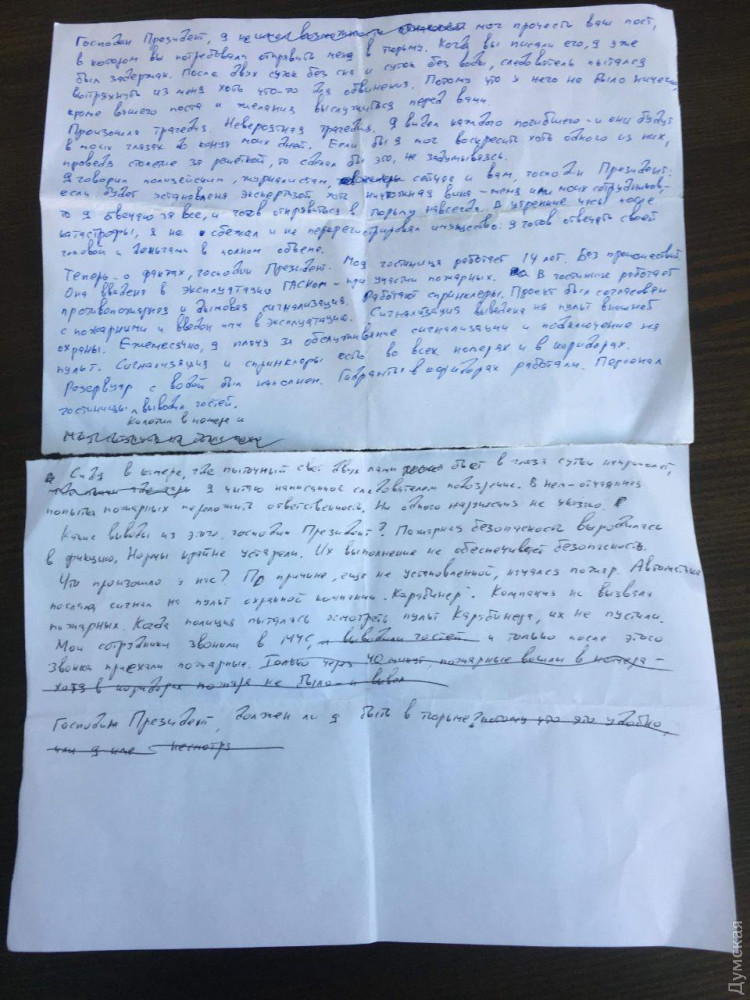 Господин Президент, я не мог прочесть ваш пост,
в котором вы потребовали отправить меня в тюрьму. Когда вы писали его, я уже
был задержан. После двух суток без сна и суток без воды, следователь пытался
вытряхнуть из меня хоть что-то для обвинения. Потому что у него не было ничего,
кроме вашего поста и желания выслужиться перед вами.
Произошла трагедия. Невероятная трагедия. Я видел каждого погибшего и они будут
в моих глазах до конца моих дней. Если бы я мог воскресить хоть одного из них,
проведя столетие за решёткой, то сделал бы это, не задумываясь.
Я говорил полицейским, журналистам, сейчас и вам, господин Президент:
если будет установлена экспертизой хоть ничтожная вина - меня или моих сотрудников -
то я отвечаю за все, и готов отправиться в тюрьму навсегда. В утренние часы после
катастрофы, я не сбежал и не перерегистрировал имущество. Я готов отвечать своей
головой и деньгами в полном объеме.
Теперь - о фактах, господин Президент. Моя гостиница работает 14 лет. Без происшествий.
Она введена в эксплуатацию ГАСКом - при участии пожарных. В гостинице работает
противопожарная и дымовая сигнализация. Работают спринклеры. Проект был согласован
с пожарными и введен ими в эксплуатацию. Сигнализация выведена на пульт внешней
охраны. Ежемесячно, я плачу за обслуживание сигнализации и подключение на
пульт. Сигнализация и спринклеры есть во всех номерах и в коридорах.
Резервуар с водой был наполнен. Гидранты в коридорах работали. Персонал
гостиницы выводил гостей.
Колотил в номера и
Сидя в камере, где пыточный свет двух ламп бьет в глаза сутки напролет,
я читаю написанное следователем подозрение. В нем - отчаянная
попытка пожарных переложить ответственность. Ни одного нарушения не указано.
Какие выводы из этого, господин Президент? Пожарная безопасность выродилась
в фикцию. Нормы крайне устарели. Их выполнение не обеспечивает безопасность.
Что произошло у нас? По причине, еще не установленной, начался пожар. Автоматика
послала сигнал на пульт охранной компании "Карабинер". Компания не вызвала
пожарных. Когда полиция пыталась осмотреть пульт Карабинера, их не пустили.
Мои сотрудники звонили в МЧС, и выводили гостей и только после этого
звонка приехали пожарные. Только через 40 минут, пожарные вошли в номера -
хотя в коридорах пожара не было - и вывел
Господин Президент, должен ли я быть в тюрьме? потому что это удобно,
или я или несмотря
Думская